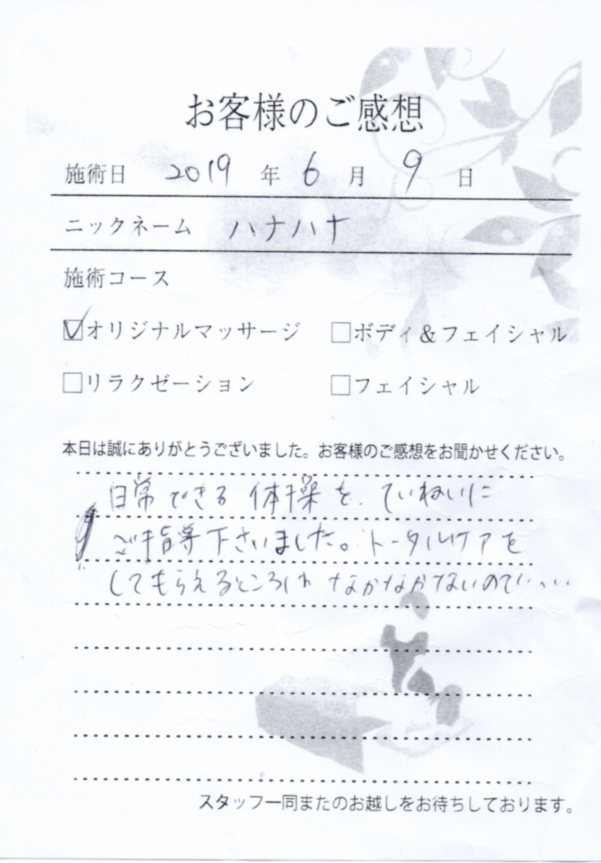 お客様のご感想
施術日 2019 年 6 月 9 日
ニックネーム ハナハナ
施術コース
☑オリジナルマッサージ □ボディ＆フェイシャル
□リラクゼーション □フェイシャル
本日は誠にありがとうございました。お客様のご感想をお聞かせください。
日常できる体操を、ていねいに
ご指導下さいました。トータルケアを
してもらえるところはなかなかないので、、、
スタッフ一同またのお越しをお待ちしております。